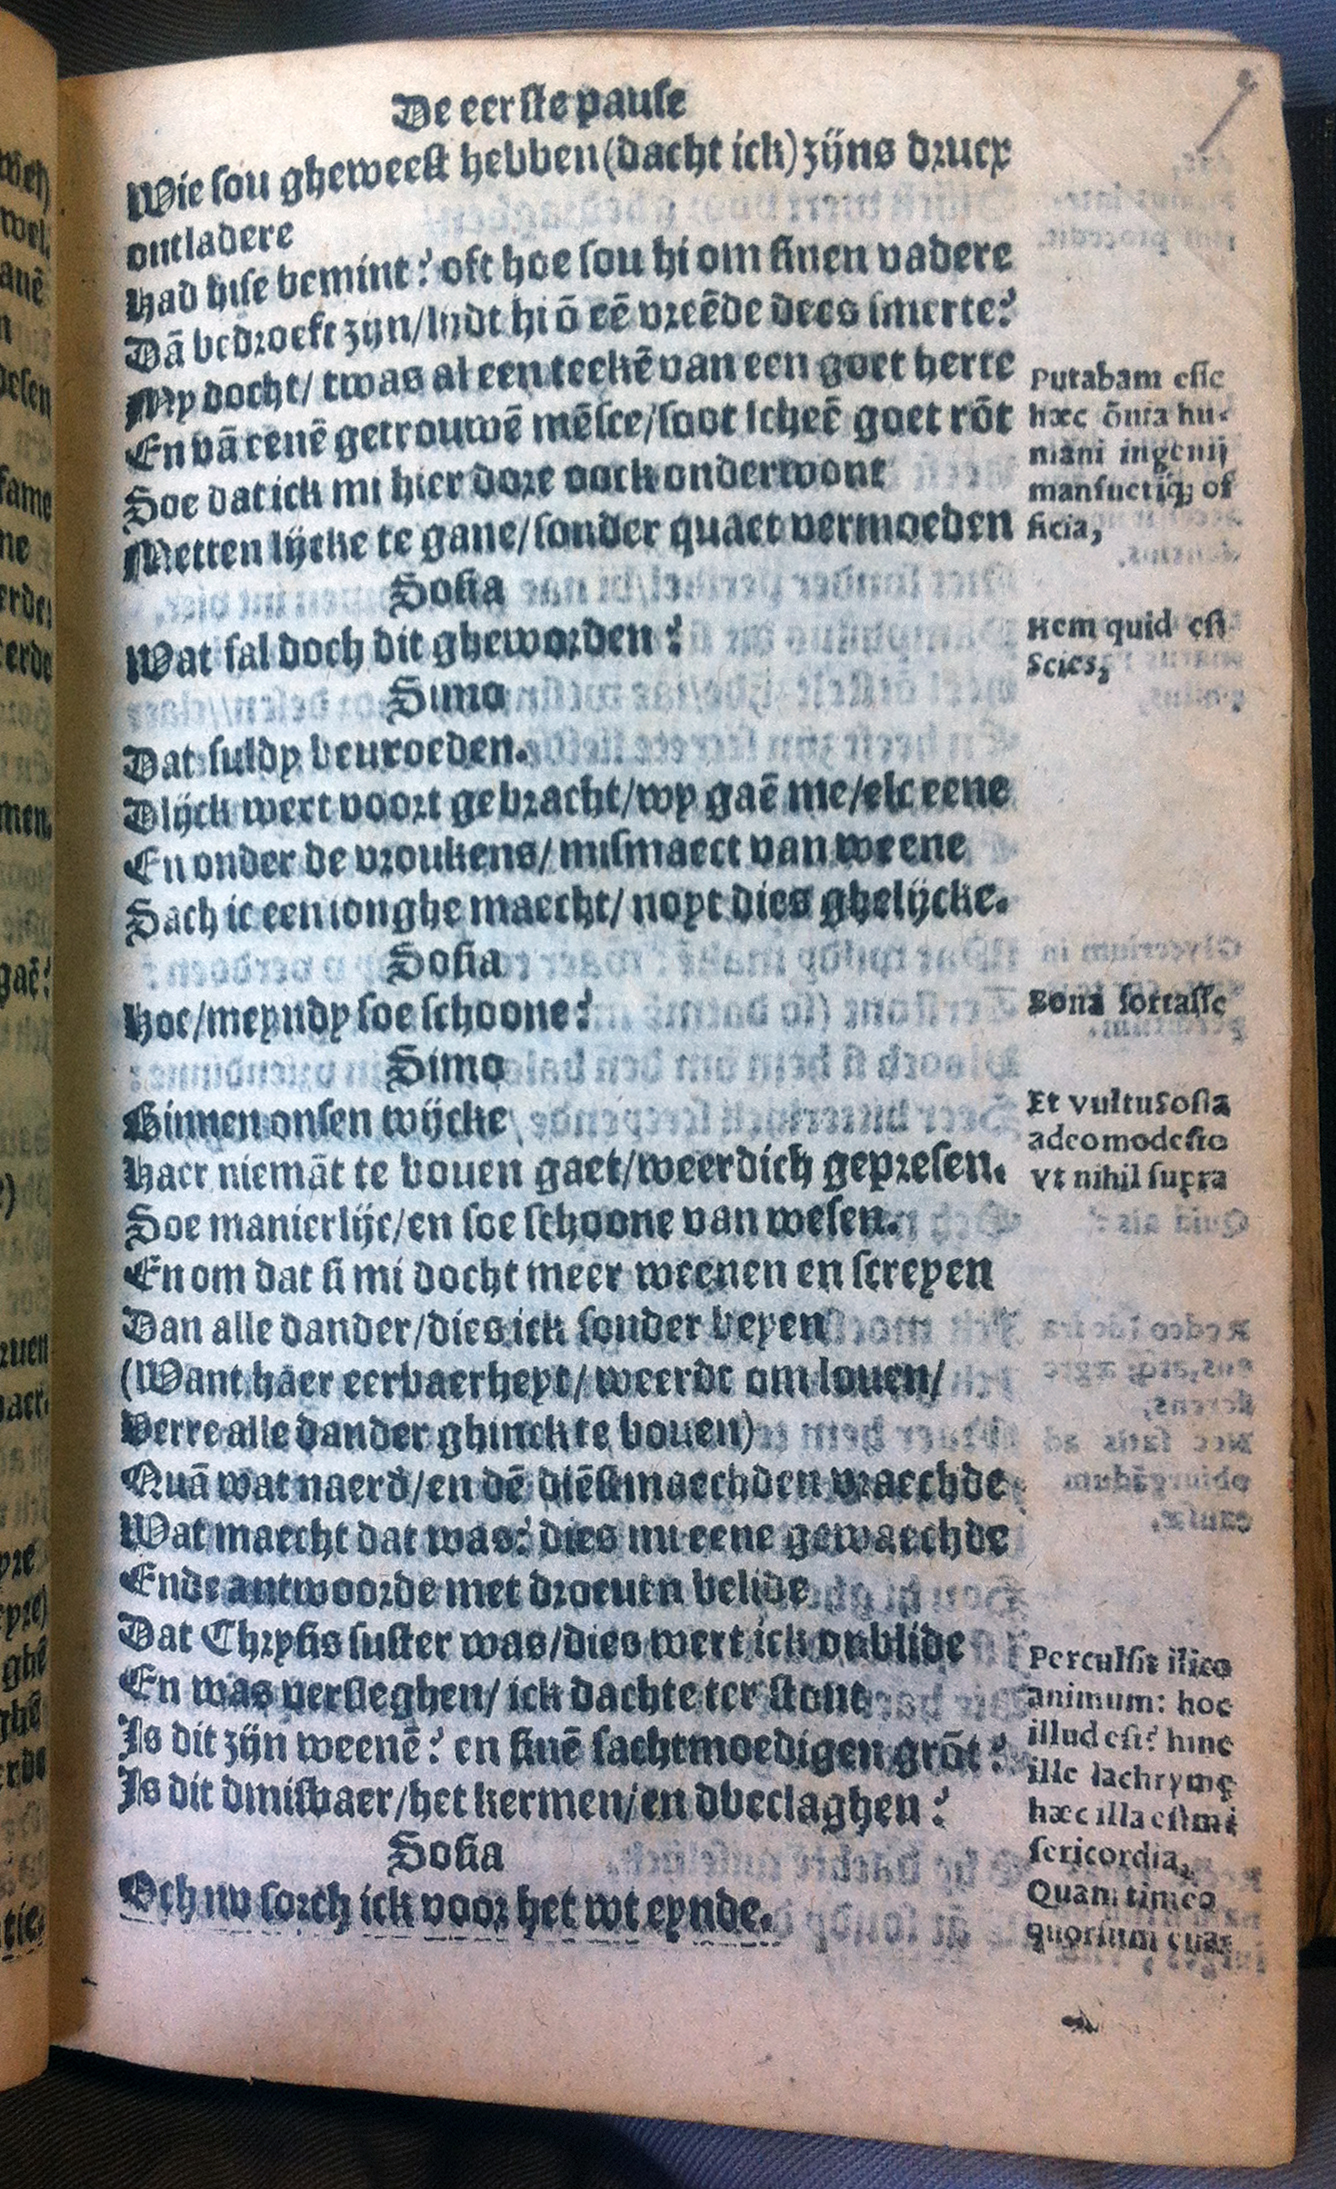 De eerste pause
Wie sou gheweest hebben (dacht ick) zijns drucx
ontladere
Had hise bemint? oft hoe sou hi om sinen vadere
Dā bedroeft zijn/ lijdt hi ō eē vreēde dees smerte?
My docht/ twas al een teekē van een goet herte
En vā eenē getrouwē mēsce/ soot scheē goet rōt
Soe dat ick mi hier dore oock onderwont
Metten lijcke te gane/ sonder quaet vermoeden
Sosia
Wat sal doch dit gheworden?
Simo
Dat suldy bevroeden.
Dlijck wert voort gebracht/ wy gaē me/ elc eene
En onder de vroukens/ mismaect van weene
Sach ic een ionghe maecht/ noyt dies ghelijcke.
Sosia
Hoe/ meyndy soe schoone?
Simo
Binnen onsen wijcke
Haer niemāt te bouen gaet/ weerdich gepresen.
Soe manierlijc/ en soe schoone van wesen.
En om dat si mi docht meer weenen en screyen
Dan alle dander/ dies ick sonder beyen
(Want haer eerbaerheyt/ weerdt om louen/
Verre alle dander ghinck te bouen)
Quā wat naerd/ en dē diēstmaechden vraechde
Wat maecht dat was? dies mi eene gewaechde
Ende antwoorde met droeuen belijde
Dat Chrysis suster was/ dies wert ick onblijde
En was versleghen/ ick dachte ter stont
Is dit zijn weenē? en sinē sachtmoedigen grōt?
Is dit dmisbaer/ het kermen/ en dbeclaghen?
Sosia
Och nu sorch ick voor het wt eynde.
Putabam esse
hæc ōnia hu-
mani ingenij
mansuetiq; of
ficia,
Hem quid est
Scies,
Bona fortasse
Et vultu Sosia
adeo modesto
vt nihil supra
Perculsit ilico
animum: hoc
illud est? hinc
ille lachrymę
hæc illa est mi
sericordia,
Quam timeo
quorsum euas